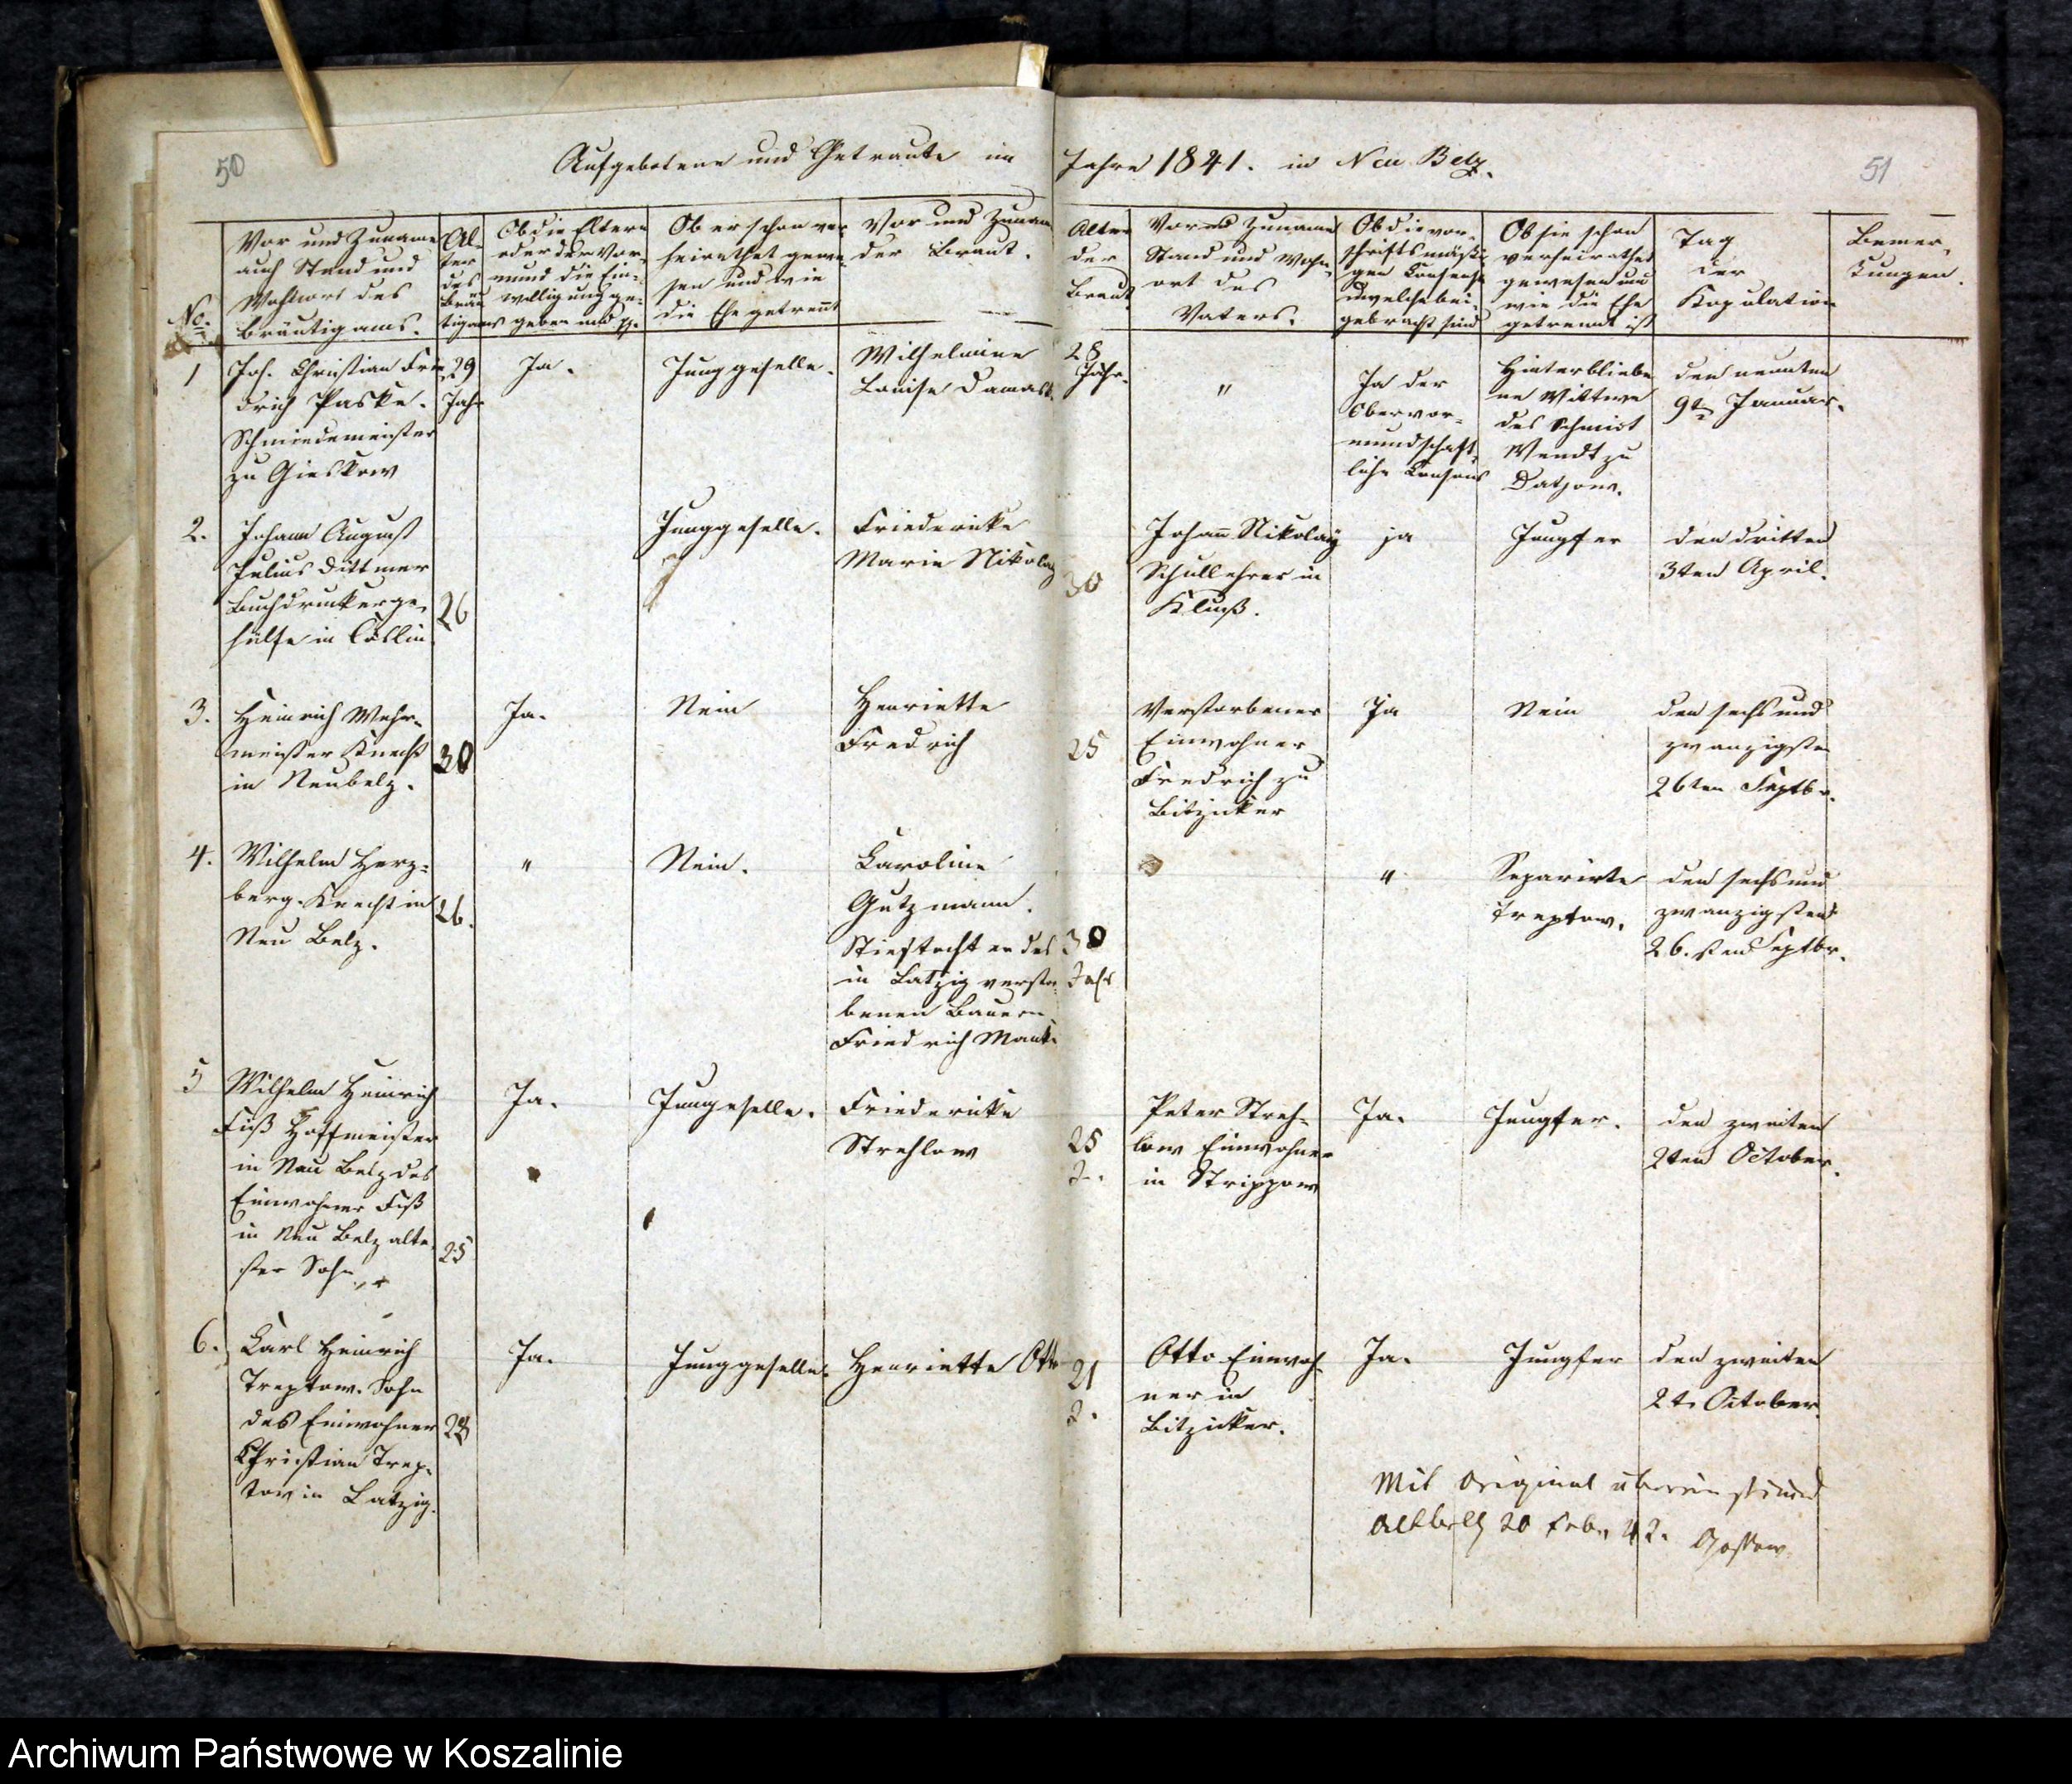 50
Aufgebotene und Getraute im
Jahre 1841. in Neu Belz.
51
No.
Vor und Zuname
auch Stand und
Wohnort des
Bräutigams.
Al-
ter
des
Bräu
tigams
Ob die Eltern
oder der Vor-
mund die Ein-
willigung ge-
geben und
Ob er schon ver
heirathet gewe
sen und wie
die Ehe getrennt
Vor und Zunam
der Braut.
Alter
der
Braut
Vor und Zuname
Stand und Wohn-
ort des
Vaters.
Ob die vor-
schriftsmäßi-
gen Consense
u welche bei-
gebracht sind
Ob sie schon
verheirathet
gewesen und
wie die Ehe
getrennt ist
Tag
der
Kopulation
Bemer-
kungen.
1
Joh. Christian Frie
drich Paske.
Schmiedemeister
zu Gieskow
29
Jahr
Ja.
Junggeselle.
Wilhelmine
Louise Damast.
28
Jahr.
"
Ja der
Obervor-
mundschaft
liche Consens
Hinterbliebe
ne Wittwe
des Schmidt
Wendt zu
Datjow.
den neunten
9t. Januar.
2.
Johann August
Julius Dittmer
Buchdruckerge-
hülfe in Cöslin.
26
Junggeselle.
Friedericke
Marie Nikolay
30
Johann Nikolay
Schullehrer in
Kluß.
ja
Jungfer
den dritten
3ten April.
3.
Heinrich Wehr-
meister Knecht
in Neubelz.
30
Ja.
Nein
Henriette
Fredrich
25
Verstorbener
Einwohner
Fredrich zu
Bitzicker
Ja
Nein
den sechs und
zwanzigsten
26ten Septbr.
4.
Wilhelm Herz-
berg. Knecht in
Neu Belz.
26.
"
Nein.
Karoline
Gutzmann.
Stieftochter des
in Latzig verstor
benen Bauern
Friedrich Manke
30
Jahr
"
Separirte
Treptow.
den sechs und
zwanzigsten
26. sten Septbr.
5
Wilhelm Heinrich
Fiß Hoffmeister
in Neu Belz des
Einwohner Fiß
in Neu Belz älte
ster Sohn
25
Ja.
Jungeselle.
Friedericke
Strehlow
25
J.
Peter Streh-
low Einwohner
in Strippow
Ja.
Jungfer.
den zweiten
2ten October.
6.
Karl Heinrich
Treptow. Sohn
des Einwohner
Christian Trep-
tow in Latzig.
Ja.
Junggeselle.
Henriette Otto
21
J.
Otto Einwoh
ner in
Bitzicker.
Ja.
Jungfer
den zweiten
2t. October.
Mit Original übereinstimmend
Altbelz 20 Febr 42.
Archiwum Państwowe w Koszalinie